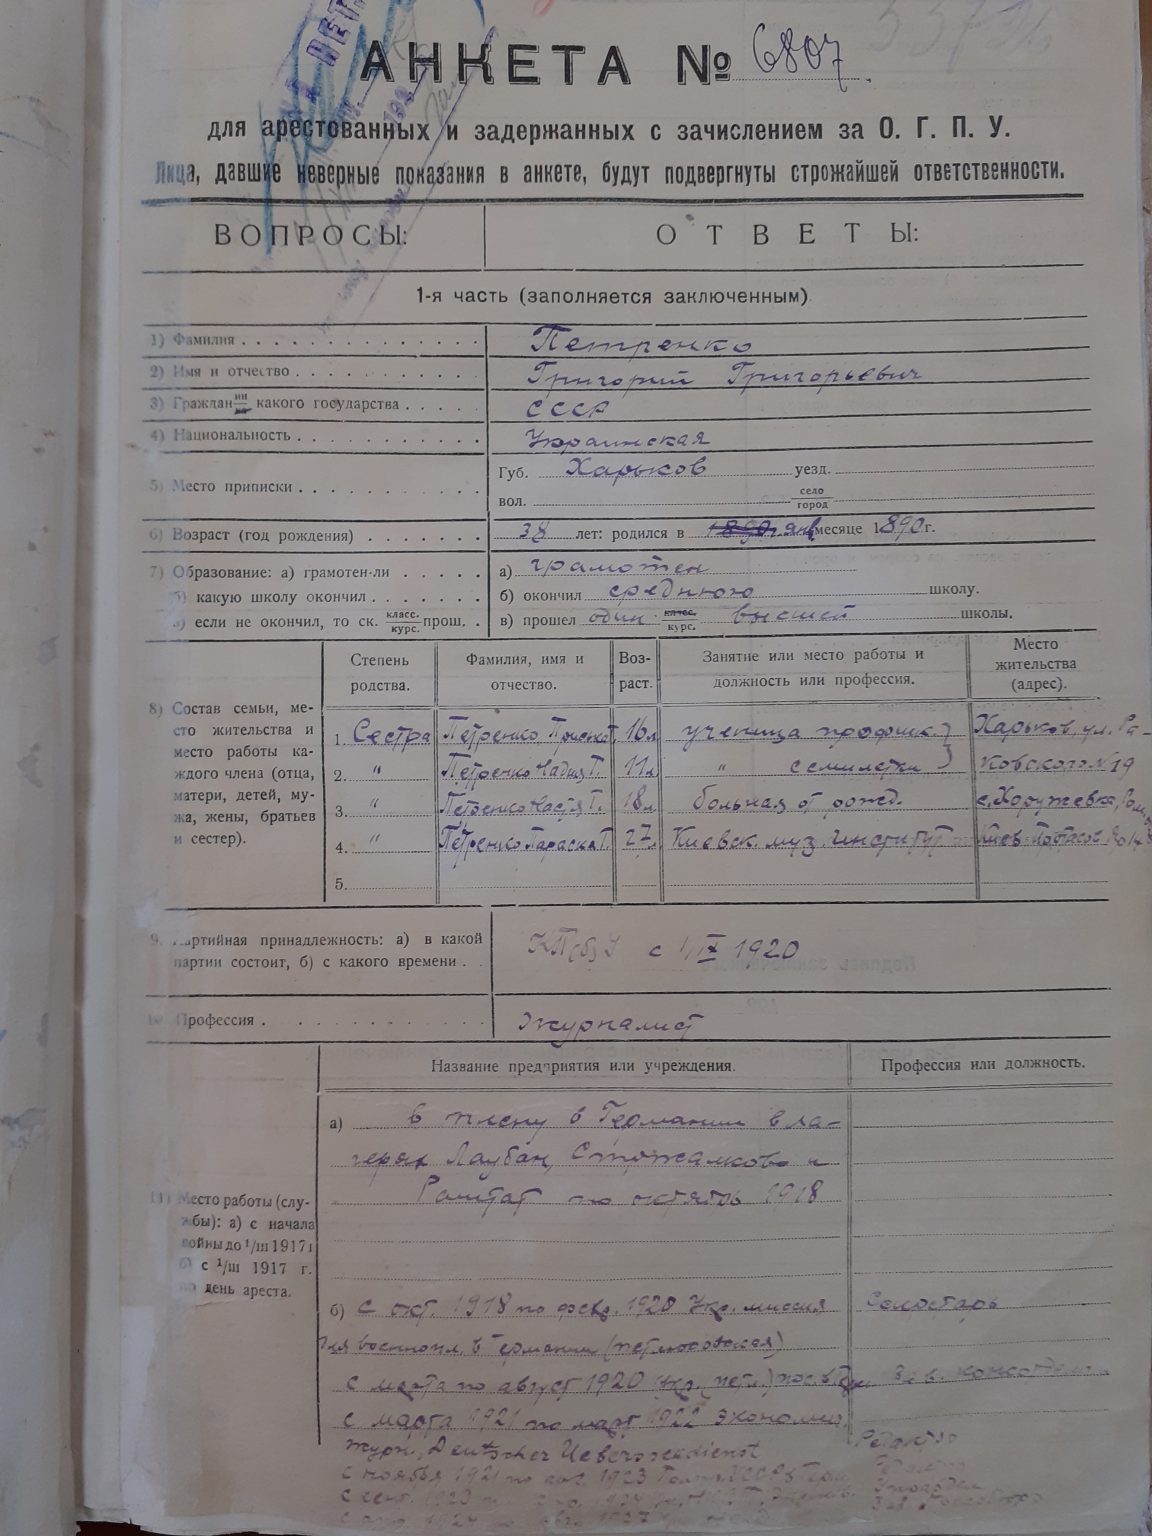 АНКЕТА № 6807
для арестованных и задержанных с зачислением за О. Г. П. У.
Лица, давшие неверные показания в анкете, будут подвергнуты строжайшей ответственности.
ВОПРОСЫ: ОТВЕТЫ:
1-я часть (заполняется заключенным)
1) Фамилия Петренко
2) Имя и отчество Григорий Григорьевич
3) Граждан ин какого государства СССР
4) Национальность Украинская
5) Место приписки Губ. Харьков уезд.
вол. село город
6) Возраст (год рождения) 38 лет: родился в янв месяце 1890 г.
7) Образование: а) грамотен-ли а) грамотен
б) какую школу окончил б) окончил среднюю школу.
в) если не окончил, то ск. класс. курс. прош. в) прошел один класс. курс. высшей школы.
8) Состав семьи, место жительства и место работы каждого члена (отца, матери, детей, мужа, жены, братьев и сестер).
Степень родства. Фамилия, имя и отчество. Возраст. Занятие или место работы и должность или профессия. Место жительства (адрес).
1. Сестра Петренко 16 л ученица профшк. Харьков, ул. Ра-
2. " Петренко Надия Г. 11 л " семилетки ковского № 19
3. " Петренко Настя Г. 18 л больная от рожд. с. Хоружевка,
4. " Петренко Параска Г. 27 л Киевск. муз. институт Киев
5.
9. Партийная принадлежность: а) в какой партии состоит, б) с какого времени КП(б)У с 1/IX 1920
10. Профессия Журналист
Название предприятия или учреждения. Профессия или должность.
11) Место работы (службы): а) с начала войны до 1/III 1917 г. б) с 1/III 1917 г. по день ареста.
а) в плену в Германии в ла-
герях Лаубан, и
Раштат по октябрь 1918
б) с окт. 1918 по февр. 1920 Укр. миссия Секретарь
для военнопл. в Германии (петлюровская)
с марта по август 1920 Укр. (петл.) пос. в Зав.
с марта 1921 по март 1922 экономич.
журн. Deutscher Ueberseedienst Редактор
с ноября 1921 по 1923
с сент. 1923